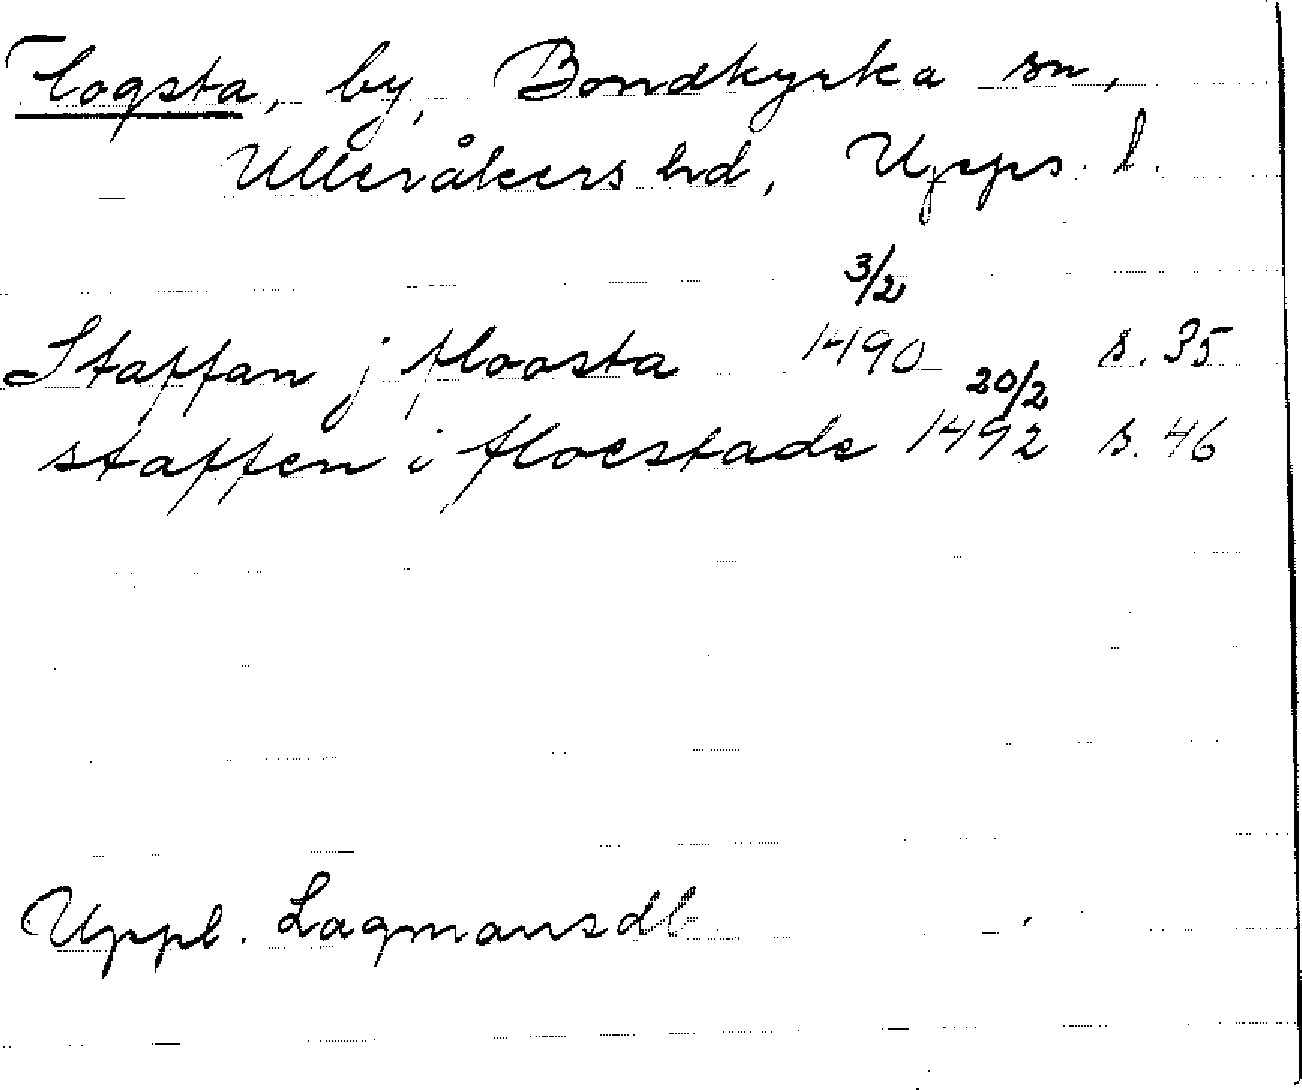 Flogsta, by, Bondkyrka sn,
Ulleråkers hd, Upps. l.
3/2
Staffan j floosta 1490 s. 35
20/2
staffen i floestade 1492 s. 46
Uppl. Lagmansdb